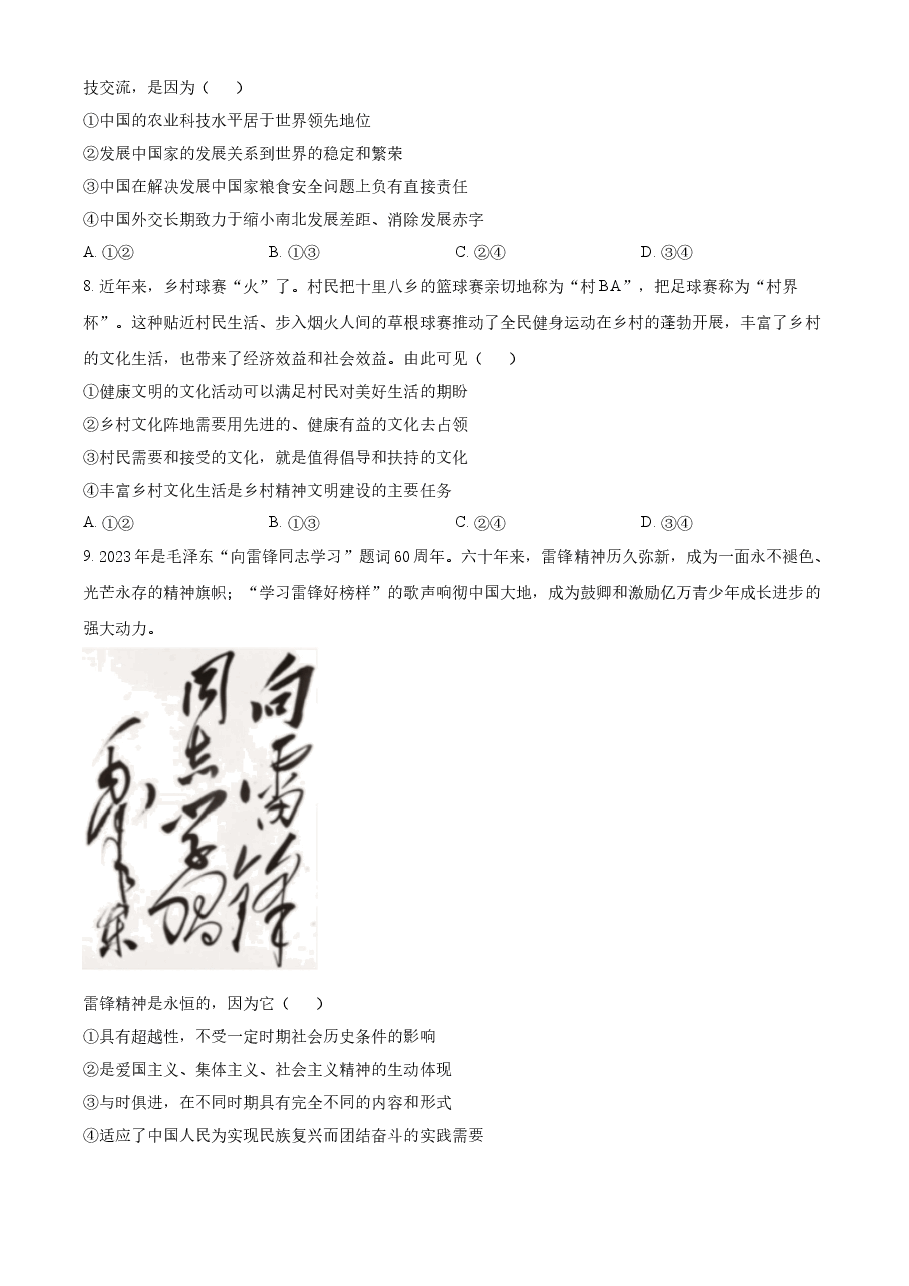 技交流，是因为（　　）
①中国的农业科技水平居于世界领先地位
②发展中国家的发展关系到世界的稳定和繁荣
③中国在解决发展中国家粮食安全问题上负有直接责任
④中国外交长期致力于缩小南北发展差距、消除发展赤字
A. ①② B. ①③ C. ②④ D. ③④
8. 近年来，乡村球赛“火”了。村民把十里八乡的篮球赛亲切地称为“村BA”，把足球赛称为“村界
杯”。这种贴近村民生活、步入烟火人间的草根球赛推动了全民健身运动在乡村的蓬勃开展，丰富了乡村
的文化生活，也带来了经济效益和社会效益。由此可见（　　）
①健康文明的文化活动可以满足村民对美好生活的期盼
②乡村文化阵地需要用先进的、健康有益的文化去占领
③村民需要和接受的文化，就是值得倡导和扶持的文化
④丰富乡村文化生活是乡村精神文明建设的主要任务
A. ①② B. ①③ C. ②④ D. ③④
9. 2023年是毛泽东“向雷锋同志学习”题词60周年。六十年来，雷锋精神历久弥新，成为一面永不褪色、
光芒永存的精神旗帜；“学习雷锋好榜样”的歌声响彻中国大地，成为鼓卿和激励亿万青少年成长进步的
强大动力。
向雷锋
同志学习
毛泽东
雷锋精神是永恒的，因为它（　　）
①具有超越性，不受一定时期社会历史条件的影响
②是爱国主义、集体主义、社会主义精神的生动体现
③与时俱进，在不同时期具有完全不同的内容和形式
④适应了中国人民为实现民族复兴而团结奋斗的实践需要